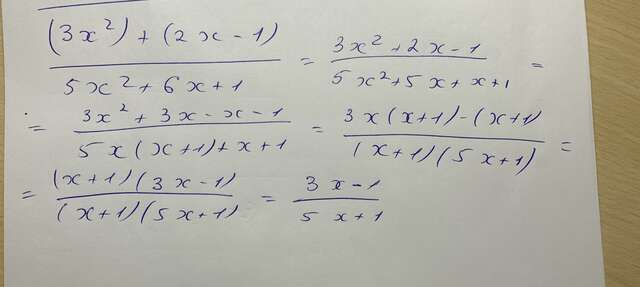 (3x²) + (2x - 1) / 5x² + 6x + 1 = 3x² + 2x - 1 / 5x² + 5x + x + 1 =
= 3x² + 3x - x - 1 / 5x(x+1) + x + 1 = 3x(x+1) - (x+1) / (x+1)(5x+1) =
= (x+1)(3x-1) / (x+1)(5x+1) = 3x-1 / 5x+1